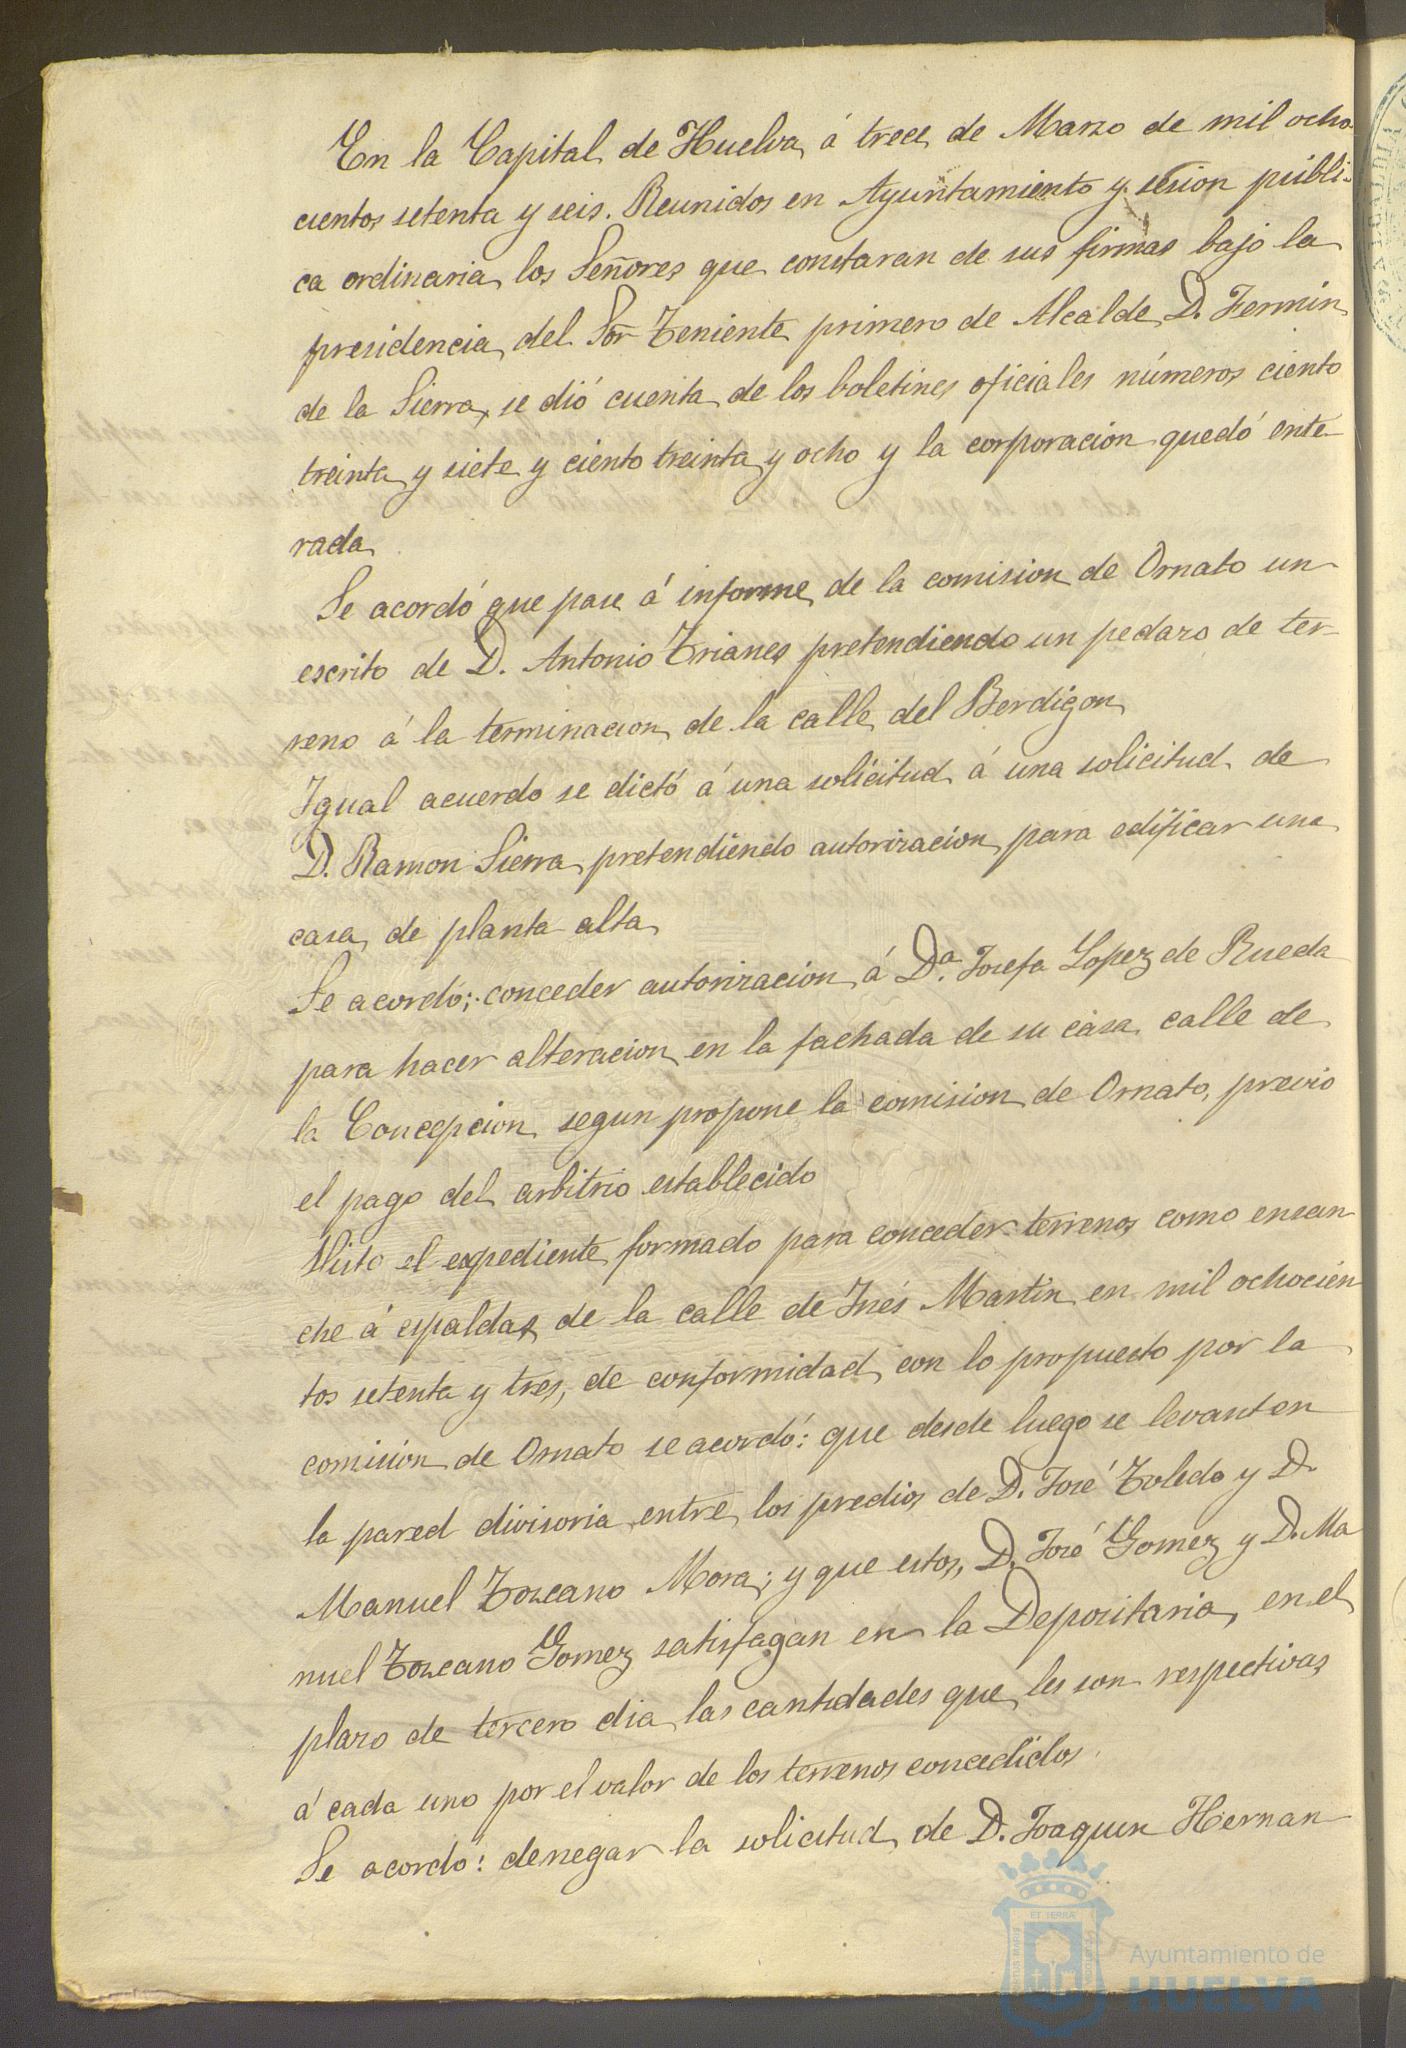 En la Capital de Huelva á trece de Marzo de mil ocho-
cientos setenta y seis. Reunidos en Ayuntamiento y sesion públi-
ca ordinaria los Señores que constaran de sus firmas bajo la
presidencia del Sor Teniente primero de Alcalde D. Fermin
de la Sierra, se dió cuenta de los boletines oficiales números ciento
treinta y siete y ciento treinta y ocho y la corporacion quedó ente-
rada
Se acordó que pase á informe de la comision de Ornato un
escrito de D. Antonio Trianes pretendiendo un pedazo de ter-
reno á la terminacion de la calle del Berdigon
Igual acuerdo se dictó á una solicitud á una solicitud de
D. Ramon Sierra pretendiendo autorizacion para edificar una
casa de planta alta
Se acordó; conceder autorizacion á Da. Josefa Lopez de Rueda
para hacer alteracion en la fachada de su casa calle de
la Concepcion segun propone la comision de Ornato, previo
el pago del arbitrio establecido
Visto el expediente formado para conceder terrenos como ensan
che á espaldas de la calle de Inés Martin en mil ochocien
tos setenta y tres, de conformidad con lo propuesto por la
comision de Ornato se acordó: que desde luego se levanten
la pared divisoria entre los predios de D. José Toledo y D.
Manuel Toscano Mora; y que estos, D. José Gomez y D. Ma
nuel Toscano Gomez satisfagan en la Depositaria, en el
plazo de tercero dia las cantidades que les son respectivas
á cada uno por el valor de los terrenos concedidos.
Se acordó: denegar la solicitud de D. Joaquin Hernan-
Ayuntamiento de
HUELVA